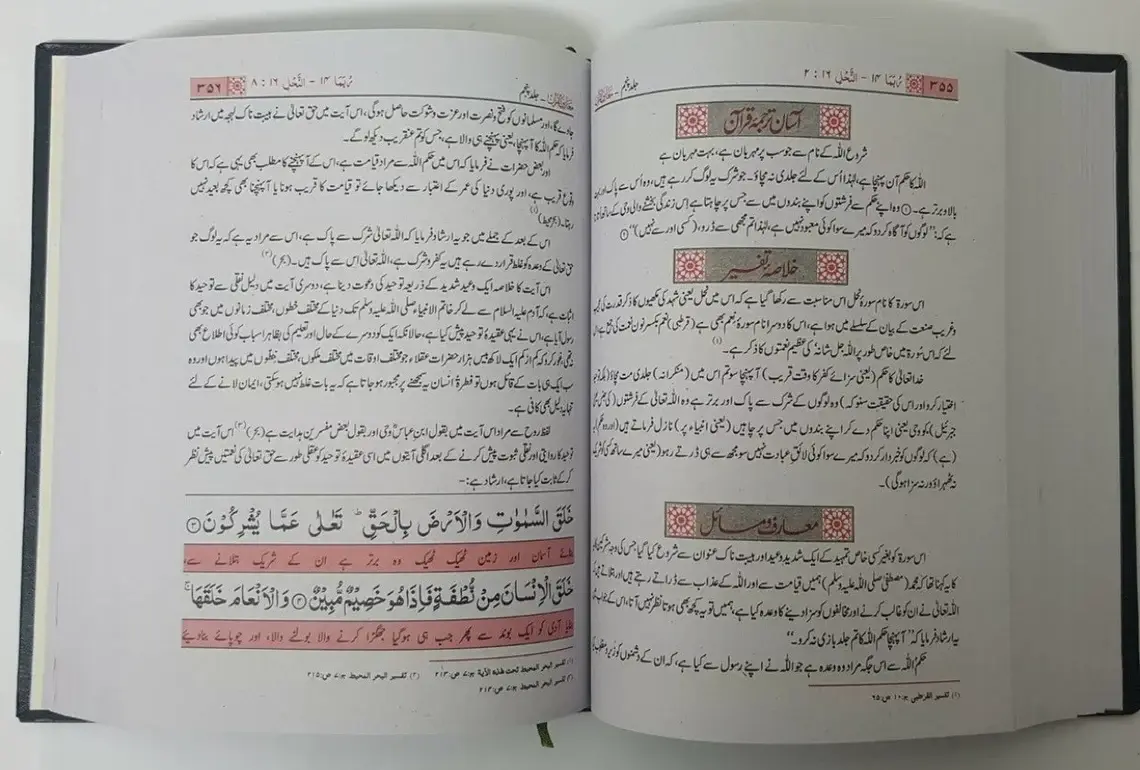 ۳۵۵
رُبَمَا ۱۴ – النَّحْل ۱۶ : ۲
جلد پنجم
آسان ترجمۂ قرآن
شروع اللہ کے نام سے جو سب پر مہربان ہے، بہت مہربان ہے
اللہ کا حکم آن پہنچا ہے، لہٰذا اُس کے لئے جلدی نہ مچاؤ۔ جو شرک یہ لوگ کر رہے ہیں، وہ اُس سے پاک اور بہت
بالا و برتر ہے۔ ۱ وہ اپنے حکم سے فرشتوں کو اپنے بندوں میں سے جس پر چاہتا ہے اِس زندگی بخشنے والی وحی کے ساتھ اُتارتا
ہے کہ: ’’لوگوں کو آگاہ کردو کہ میرے سوا کوئی معبود نہیں ہے، لہٰذا تم مجھی سے ڈرو، (کسی اور سے نہیں)‘‘ ۲
خلاصۂ تفسیر
اس سورۃ کا نام سورۂ نحل اس مناسبت سے رکھا گیا ہے کہ اس میں نحل یعنی شہد کی مکھیوں کا ذکر قدرت کی عجیب
وغریب صنعت کے بیان کے سلسلے میں ہوا ہے، اس کا دوسرا نام سورۂ نِعَم بھی ہے (قرطبی) نِعَم بکسر نون نعمت کی جمع ہے اس
لئے کہ اس سُورۃ میں خاص طور پر اللہ جل شانہ' کی عظیم نعمتوں کا ذکر ہے۔(۱)
خدا تعالیٰ کا حکم (یعنی سزائے کفر کا وقت قریب) آپہنچا سو تم اس میں (منکرانہ) جلدی مت مچاؤ (بلکہ توحید
اختیار کرو اور اس کی حقیقت سنو کہ) وہ لوگوں کے شرک سے پاک اور برتر ہے وہ اللہ تعالیٰ کے فرشتوں (کی جنس یعنی
جبرئیل) کو وحی یعنی اپنا حکم دے کر اپنے بندوں میں جس پر چاہیں (یعنی انبیاء پر) نازل فرماتے ہیں (اور وہ حکم) یہ
(ہے) کہ لوگوں کو خبردار کردو کہ میرے سوا کوئی لائقِ عبادت نہیں سو مجھ سے ہی ڈرتے رہو (یعنی میرے ساتھ کسی کو شریک
نہ ٹھہراؤ ورنہ سزا ہوگی)۔
معارف و مسائل
اس سورۃ کو بغیر کسی خاص تمہید کے ایک شدید وعید اور ہیبت ناک عنوان سے شروع کیا گیا جس کی وجہ مشرکین
کا یہ کہنا تھا کہ محمد (مصطفیٰ صلی اللہ علیہ وسلم) ہمیں قیامت سے اور اللہ کے عذاب سے ڈراتے رہتے ہیں اور بتلاتے ہیں کہ
اللہ تعالیٰ نے ان کو غالب کرنے اور مخالفوں کو سزا دینے کا وعدہ کیا ہے، ہمیں تو یہ کچھ بھی ہوتا نظر نہیں آتا، اس کے جواب میں
یہ ارشاد فرمایا کہ ’’آ پہنچا حکم اللہ کا تم جلد بازی نہ کرو۔‘‘
حکم اللہ سے اس جگہ مراد وہ وعدہ ہے جو اللہ نے اپنے رسول سے کیا ہے، کہ ان کے دشمنوں کو زیر و مغلوب کیا
(۱) تفسیر القرطبی ج: ۱۰ ص: ۶۵
۳۵۶
رُبَمَا ۱۴ – النَّحْل ۱۶ : ۸
معارف القرآن – جلد پنجم
جاوے گا، اور مسلمانوں کو فتح و نصرت اور عزت و شوکت حاصل ہوگی، اس آیت میں حق تعالیٰ نے ہیبت ناک لہجہ میں ارشاد
فرمایا کہ حکم اللہ کا آپہنچا، یعنی پہنچنے ہی والا ہے، جس کو تم عنقریب دیکھ لو گے۔
اور بعض حضرات نے فرمایا کہ اس میں حکم اللہ سے مراد قیامت ہے، اس کے آپہنچنے کا مطلب بھی یہی ہے کہ اس کا
وقوع قریب ہے، اور پوری دنیا کی عمر کے اعتبار سے دیکھا جائے تو قیامت کا قریب ہونا یا آپہنچنا بھی کچھ بعید نہیں
رہتا۔ (بحر محیط)(۱)
اس کے بعد کے جملے میں جو یہ ارشاد فرمایا کہ اللہ تعالیٰ شرک سے پاک ہے، اس سے مراد یہ ہے کہ یہ لوگ جو
حق تعالیٰ کے وعدہ کو غلط قرار دے رہے ہیں یہ کفر و شرک ہے، اللہ تعالیٰ اس سے پاک ہیں۔ (بحر)(۲)
اس آیت کا خلاصہ ایک وعید شدید کے ذریعہ توحید کی دعوت دینا ہے، دوسری آیت میں دلیل نقلی سے توحید کا
اثبات ہے، کہ آدم علیہ السلام سے لے کر خاتم الانبیاء صلی اللہ علیہ وسلم تک دنیا کے مختلف خطوں، مختلف زمانوں میں جو بھی
رسول آیا ہے، اس نے یہی عقیدۂ توحید پیش کیا ہے، حالانکہ ایک کو دوسرے کے حال اور تعلیم کی بظاہر اسباب کوئی اطلاع بھی
نہ تھی، غور کرو کہ کم از کم ایک لاکھ بیس ہزار حضرات عقلاء جو مختلف اوقات میں مختلف ملکوں، مختلف خطوں میں پیدا ہوں اور وہ
سب ایک ہی بات کے قائل ہوں تو فطرۃً انسان یہ سمجھنے پر مجبور ہو جاتا ہے کہ یہ بات غلط نہیں ہوسکتی، ایمان لانے کے لئے
تنہا یہ دلیل بھی کافی ہے۔
لفظ روح سے مراد اس آیت میں بقول ابن عباسؓ وحی اور بقول بعض مفسرین ہدایت ہے (بحر)(۳) اس آیت میں
توحید کا روایتی اور نقلی ثبوت پیش کرنے کے بعد اگلی آیتوں میں اسی عقیدۂ توحید کو عقلی طور سے حق تعالیٰ کی نعمتیں پیش نظر
کر کے ثابت کیا جاتا ہے، ارشاد ہے:–
خَلَقَ السَّمٰوٰتِ وَالْاَرْضَ بِالْحَقِّ ؕ تَعٰلٰى عَمَّا يُشْرِكُوْنَ ۳
بنائے آسمان اور زمین ٹھیک ٹھیک وہ برتر ہے ان کے شریک بتلانے سے،
خَلَقَ الْاِنْسَانَ مِنْ نُّطْفَةٍ فَاِذَا هُوَ خَصِيْمٌ مُّبِيْنٌ ۴ وَالْاَنْعَامَ خَلَقَهَا ۚ
بنایا آدمی کو ایک بوند سے پھر جب ہی ہوگیا جھگڑا کرنے والا بولنے والا، اور چوپائے بنا دیئے
(۱) تفسیر البحر المحیط تحت ھذہ الآیۃ ج: ۷ ص: ۲۱۳ (۲) تفسیر البحر المحیط ج: ۷ ص: ۲۱۵
(۳) تفسیر البحر المحیط ج: ۷ ص: ۲۱۳